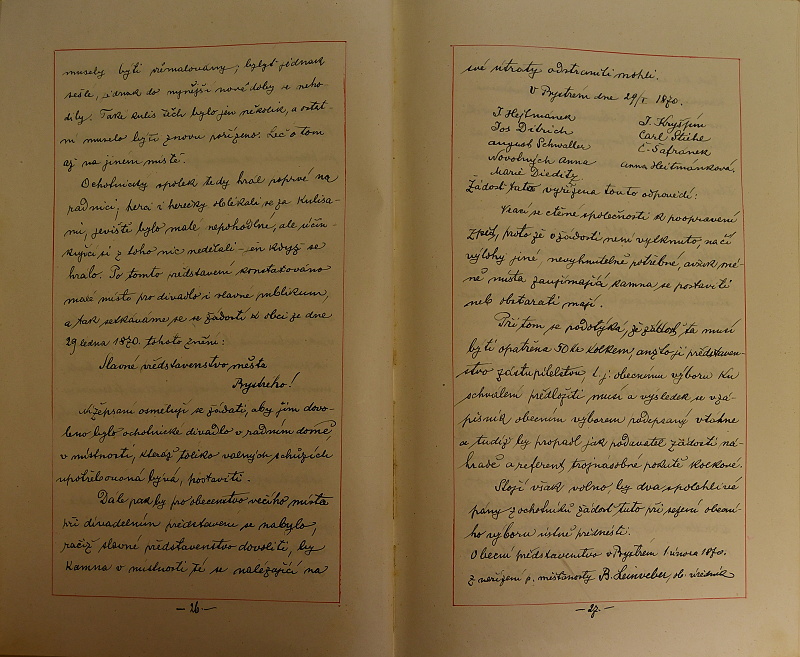 musely býti přemalovány, bylyť jednak
sešlé, jednak do nynější nové doby se neho-
dily. Také kulis těch bylo jen několik, a ostat-
ní muselo býti znovu pořízeno. Leč o tom
až na jiném místě.
Ochotnický spolek tedy hrál poprvé na
radnici, herci i herečky oblékali se za kulisa-
mi, jeviště bylo malé nepohodlné, ale účin-
kující si z toho nic nedělali – jen když se
hrálo. Po tomto představení konstatováno
malé místo pro divadlo i slavné publikum,
a tak setkáváme se se žádostí k obci ze dne
29 ledna 1870. tohoto znění:
Slavné představenstvo města
Bystrého!
Nížepsaní osmělují se žádati, aby jim dovo-
leno bylo ochotnické divadlo v radním domě,
v místnosti, kteráž toliko valných schůzích
upotřebovaná bývá, postaviti.
Dále pak by pro obecenstvo většího místa
při divadelním představení se nabylo,
račiž slavné představenstvo dovoliti, by
kamna v místnosti té se nalézající na
– 26. –
své útraty odstraniti mohli.
V Bystrém dne 29/I. 1870.
J. Hejtmánek
J. Kryšpín
Jos Ditrich
Carl Stěhle
August Schwaller
E. Šafránek
Novotných Anna
Anna Hejtmánková.
Marie Dieditz
Žádost tato vyřízena touto odpovědí:
Vrací se ctěné společnosti k poopravení
zpět, proto že o žádosti není vytknuto, načí
výlohy jiné, nevyhnutelně potřebné, avšak mé-
ně místa zaujímající kamna se postaviti
neb obstarati mají.
Při tom se podotýká, že žádost ta musí
býti opatřena 50 kr kolkem, anžto ji představen-
stvo zastupitelstvu, t. j. obecnímu výboru ku
schválení předložiti musí a výsledek se v zá-
pisník obecním výborem podepsaný vtáhne
a tudíž by propadl jak podavatel žádosti ná-
hradě a referent trojnásobné pokutě kolkové.
Stojí však volno, by dva spolehlivé
pány z ochotníků žádost tuto při sezení obecní-
ho výboru ústně přednésti.
Obecní představenstvo v Bystrém 1 února 1870.
Z nařízení p. měšťanosty B. Leinveber, ob. úředník
– 27. –